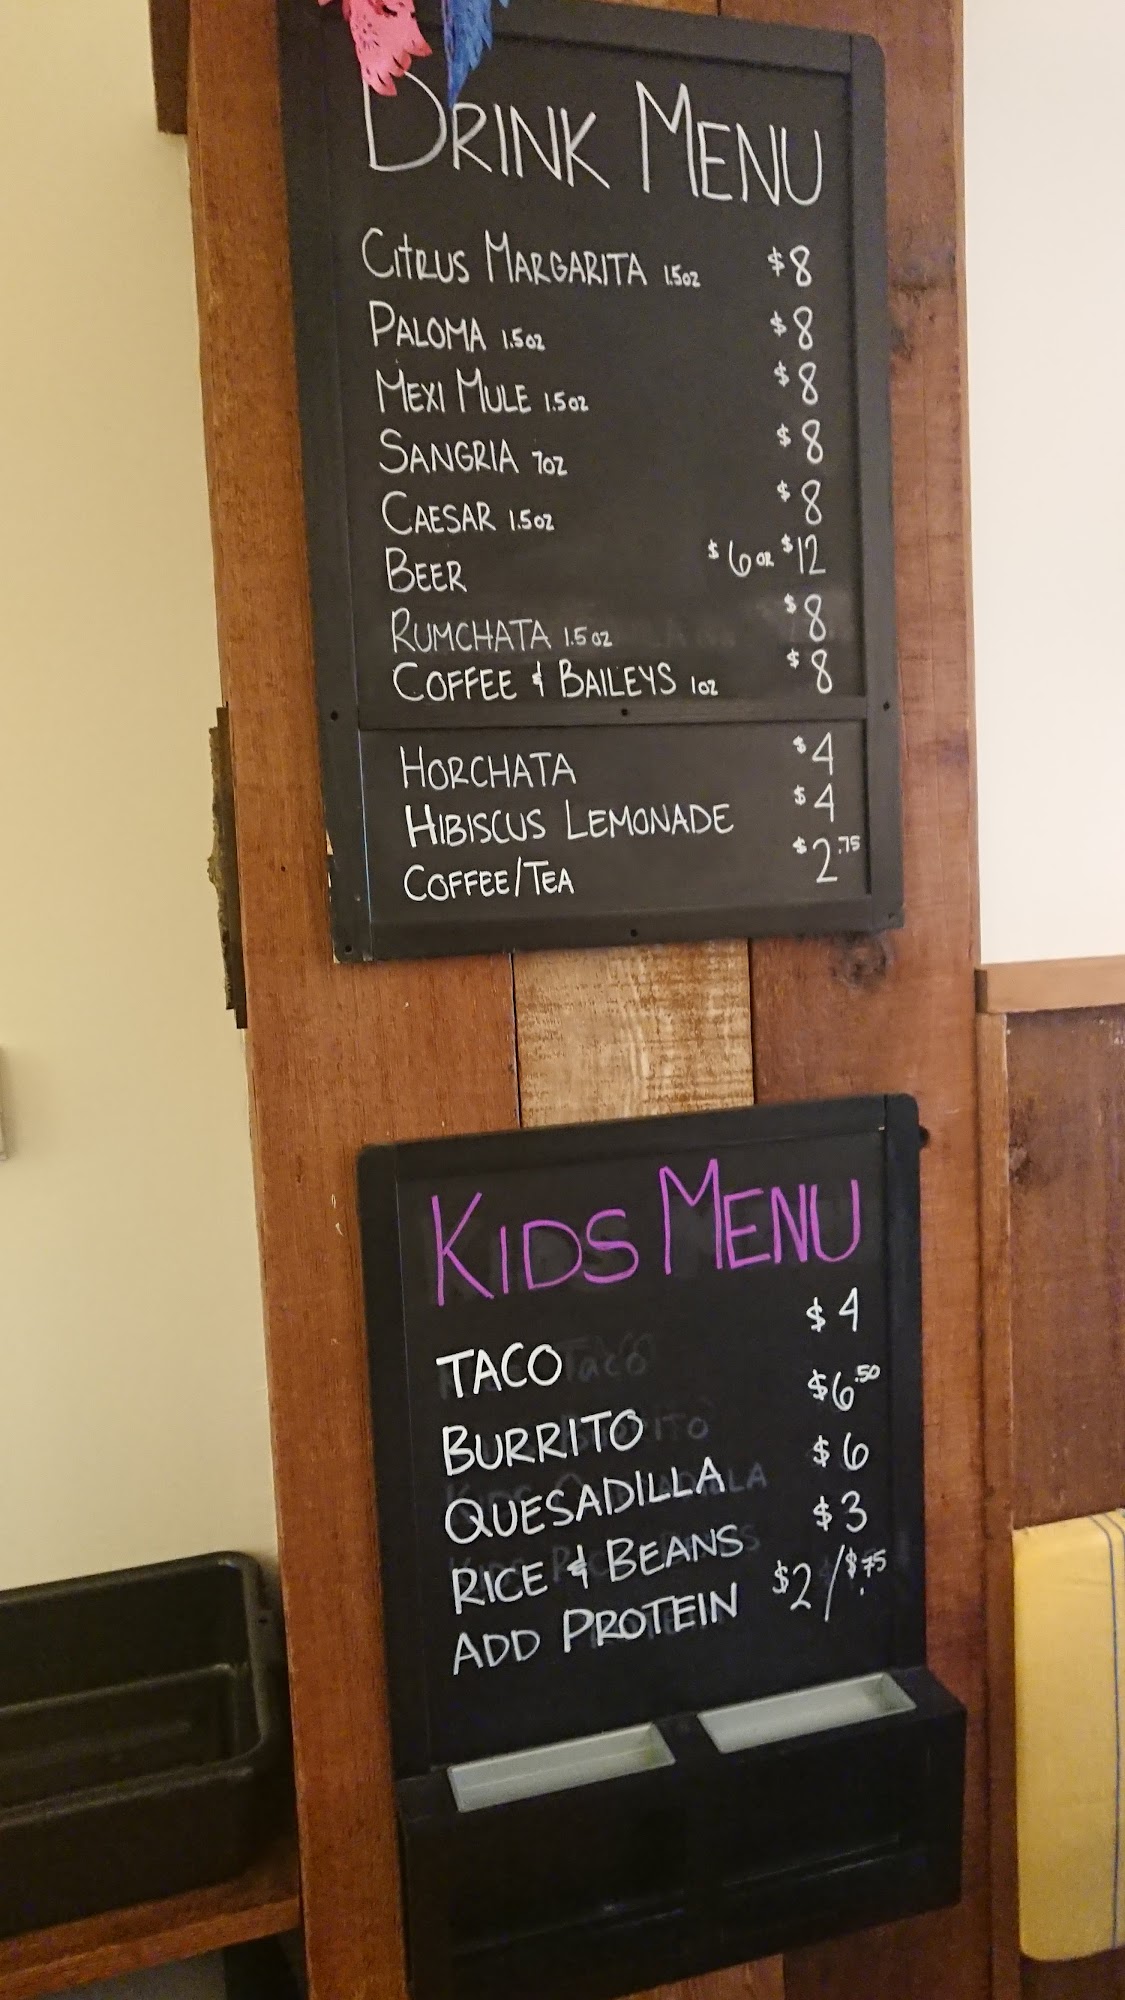 DRINK MENU
CITRUS MARGARITA 1.5oz $8
PALOMA 1.5oz $8
MEXI MULE 1.5oz $8
SANGRIA 7oz $8
CAESAR 1.5oz $8
BEER $6 OR $12
RUMCHATA 1.5oz $8
COFFEE & BAILEYS 1oz $8
HORCHATA $4
HIBISCUS LEMONADE $4
COFFEE/TEA $2.75
KIDS MENU
TACO $4
BURRITO $6.50
QUESADILLA $6
RICE & BEANS $3
ADD PROTEIN $2/$.75